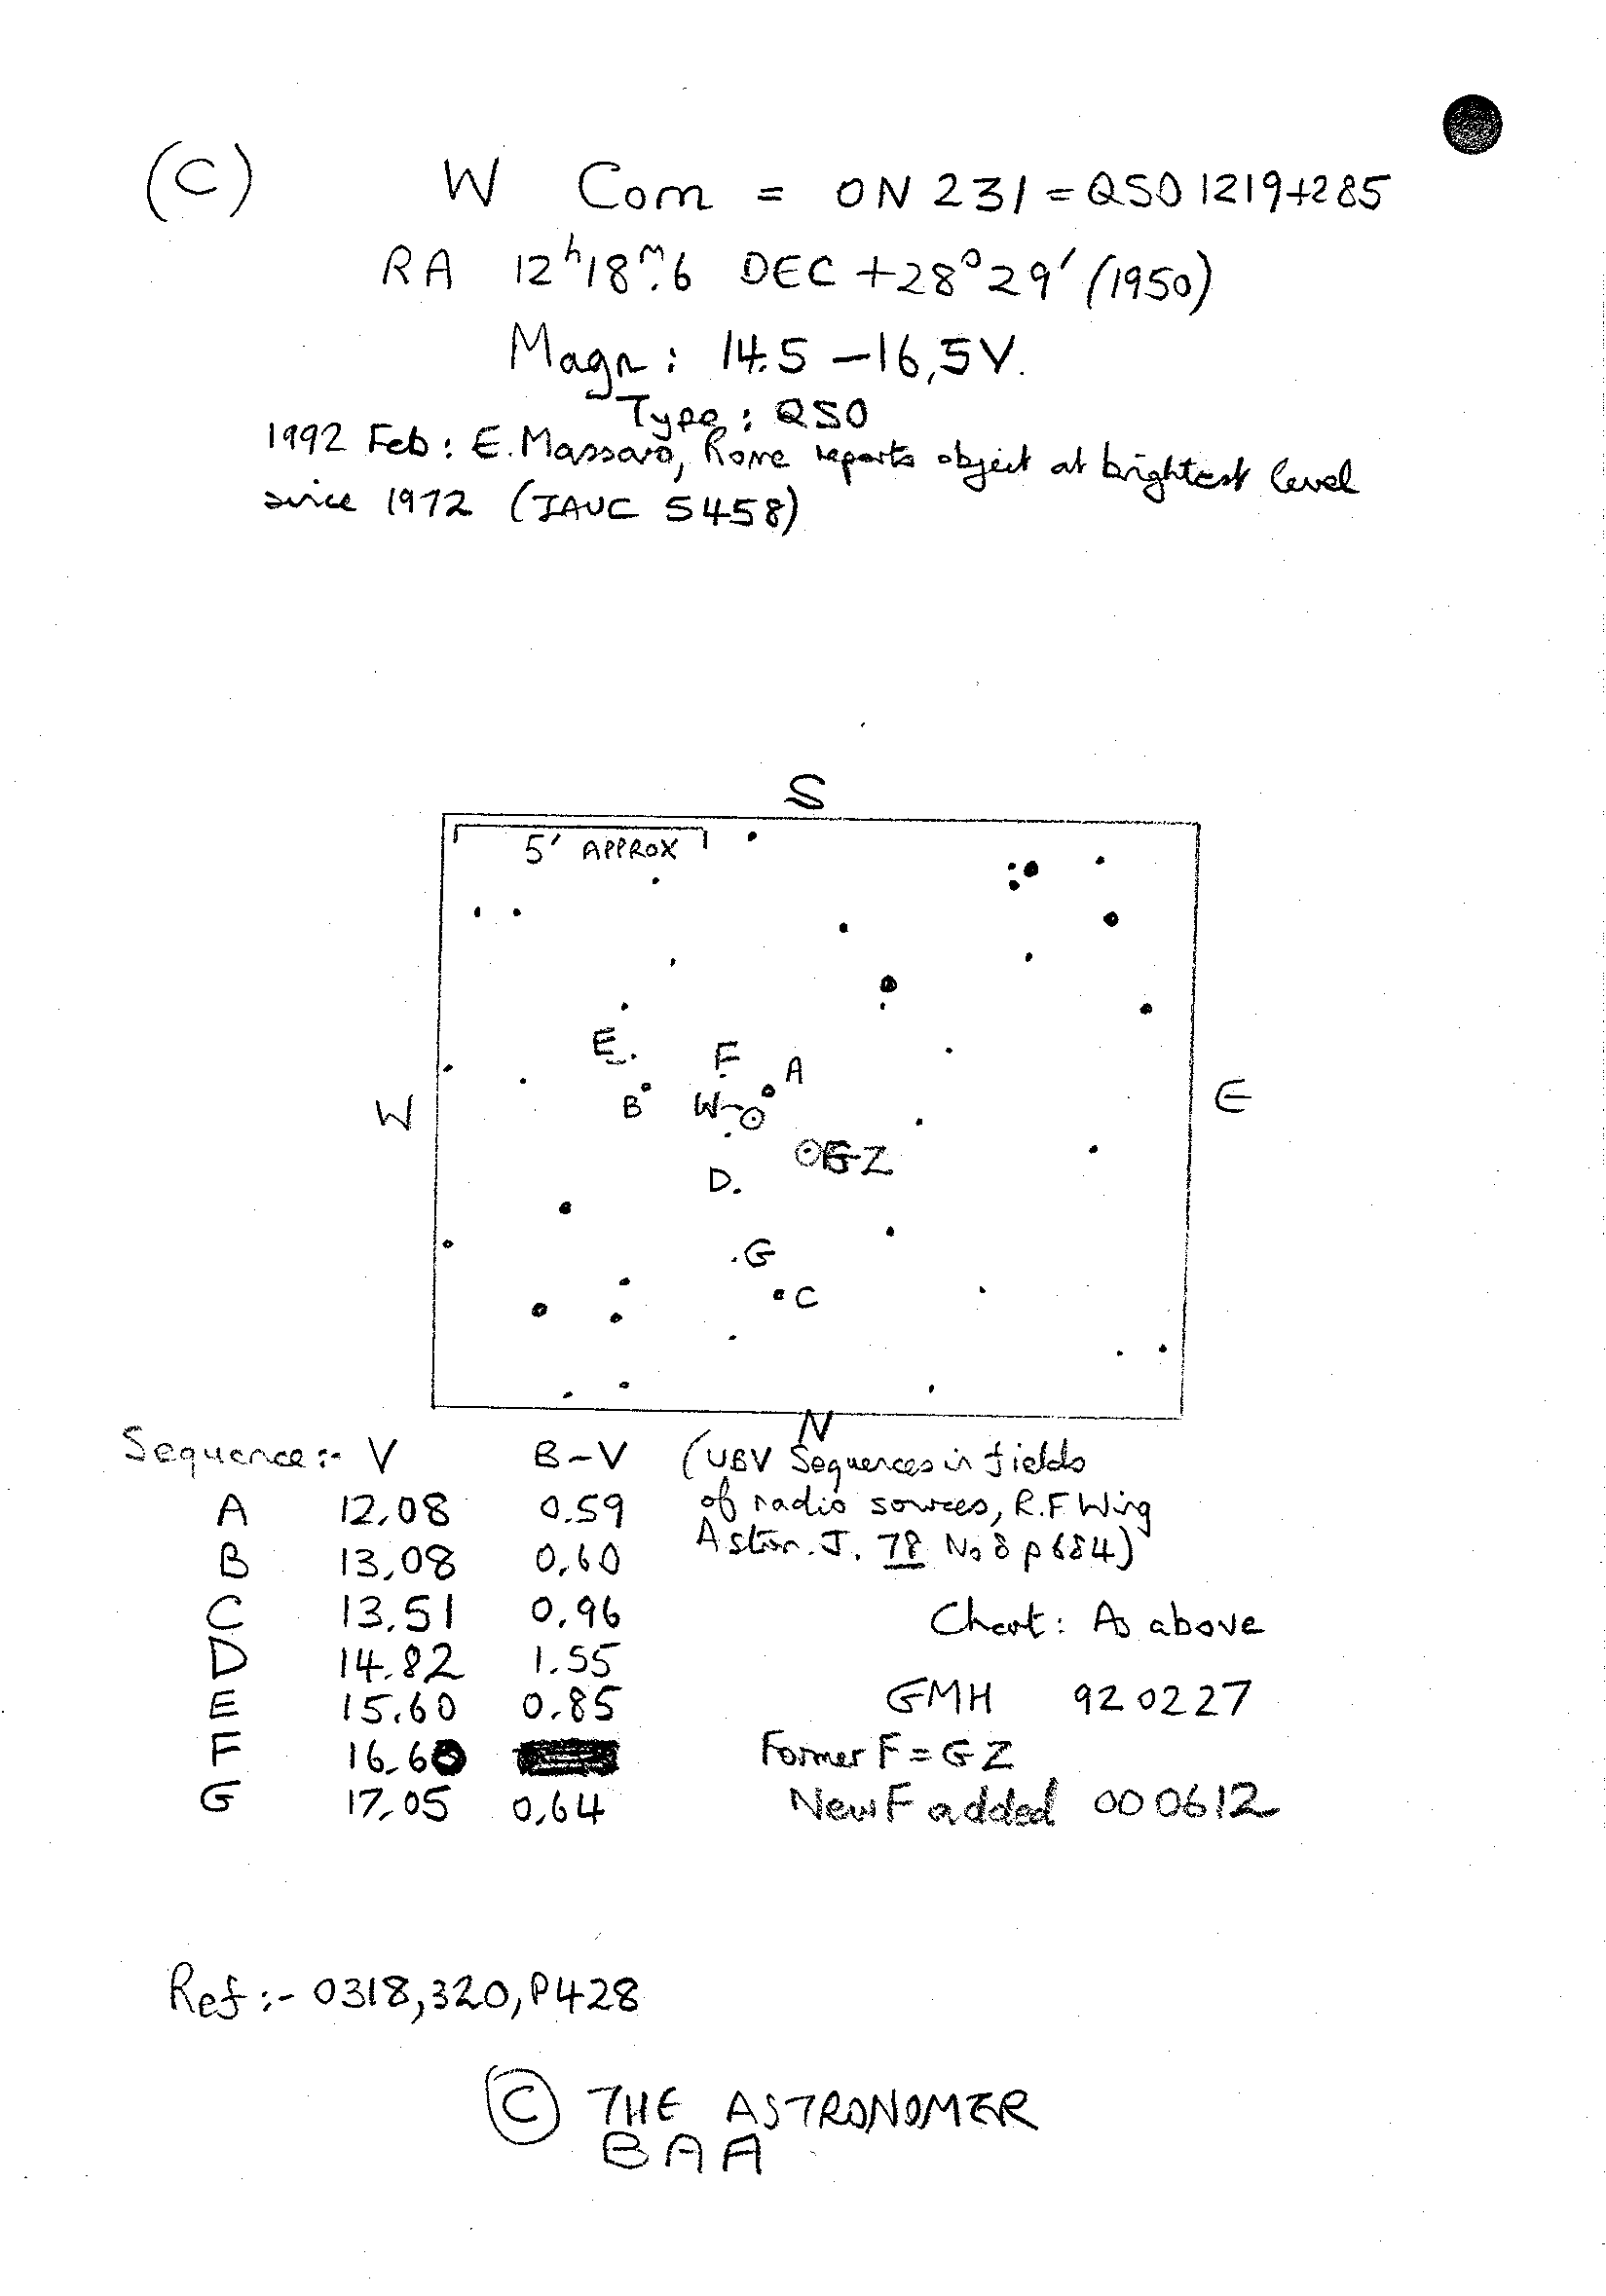 (C) W Com = ON 231 = QSO 1219+285
RA 12h18m.6 DEC +28°29′ (1950)
Magn: 14.5 – 16.5V.
Type: QSO
1992 Feb: E. Massaro, Rome reports object at brightest level
since 1972 (IAUC 5458)
S
5′ APPROX
E
F
A
W
B
W
E
GZ
D
G
C
N
Sequence:- V B-V (UBV Sequences in fields
A 12.08 0.59 of radio sources, R.F Wing
B 13.08 0.60 Astron. J. 78 No 8 p 684)
C 13.51 0.96 Chart: As above
D 14.82 1.55
E 15.60 0.85 GMH 920227
F 16.60 Former F = GZ
G 17.05 0.64 New F added 000612
Ref:- 0318,320,P428
© THE ASTRONOMER
BAA